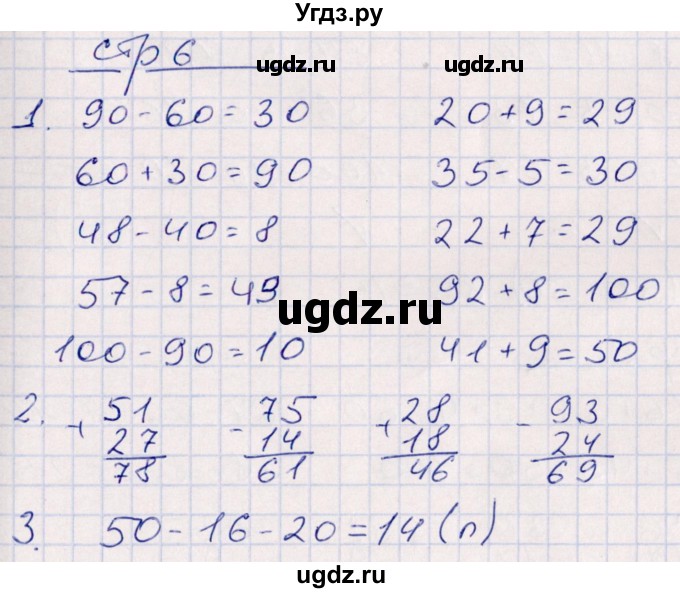 Угдз.ру
стр 6
ugdz.ru ugdz.ru
1. 90 - 60 = 30 20 + 9 = 29
60 + 30 = 90 35 - 5 = 30
48 - 40 = 8 22 + 7 = 29
57 - 8 = 49 92 + 8 = 100
ugdz.ru
100 - 90 = 10 41 + 9 = 50
2. + 51 - 75 + 28 - 93
27 14 18 24
78 61 46 69
3. 50 - 16 - 20 = 14 (п)
ugdz.ru